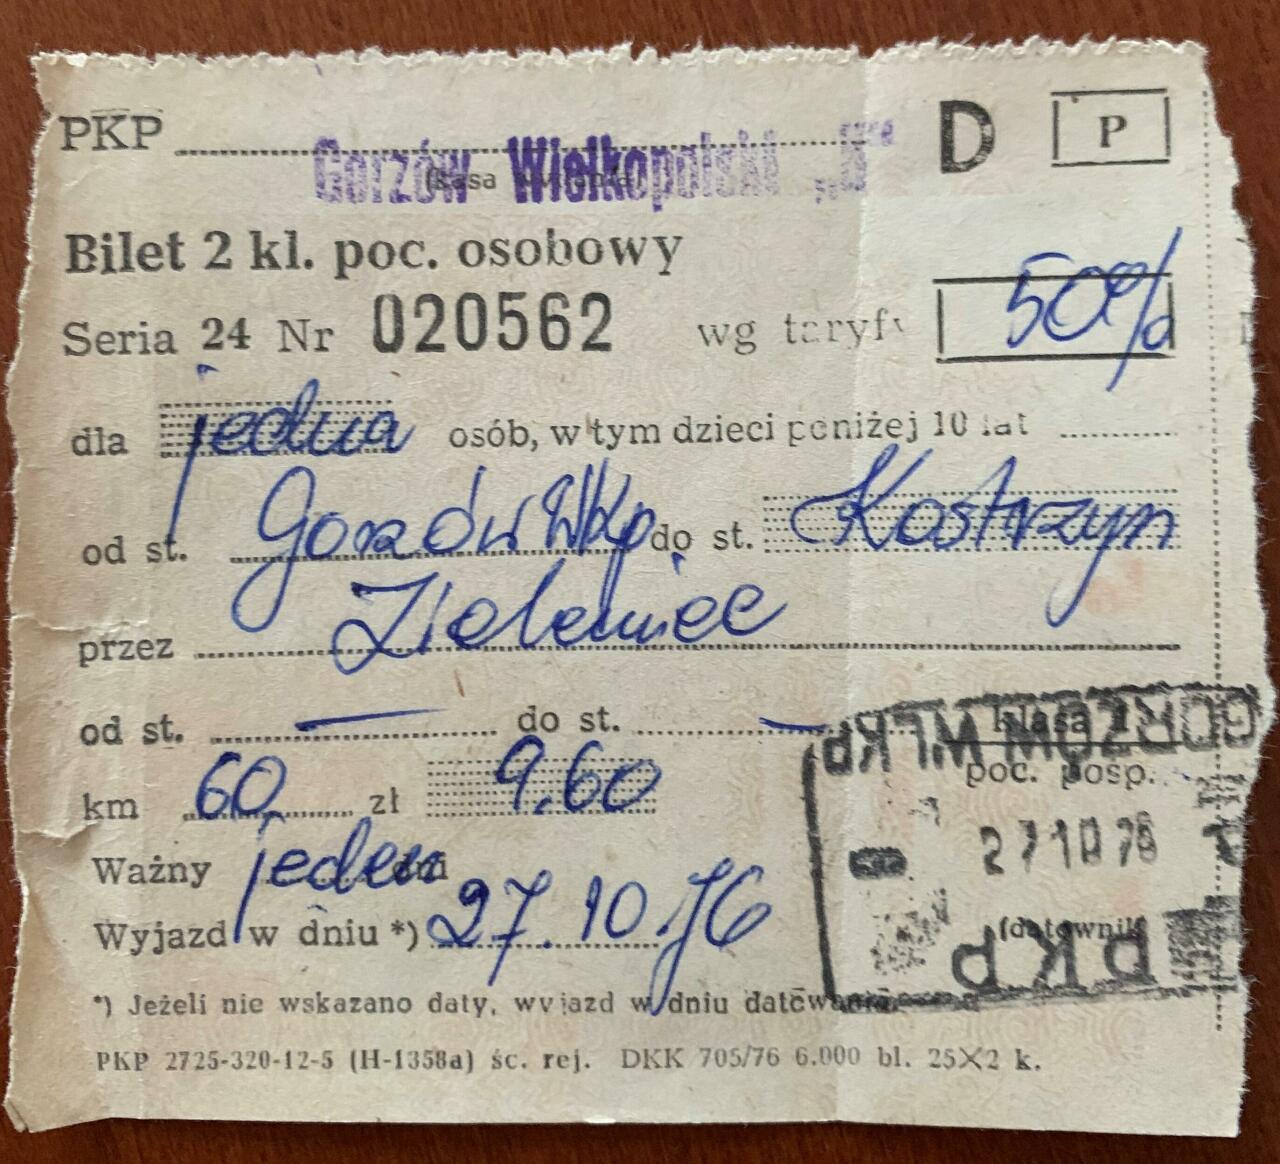 PKP Gorzów Wielkopolski D P
Bilet 2 kl. poc. osobowy
Seria 24 Nr 020562 wg taryfy 50%
dla jedna osób, w tym dzieci poniżej 10 lat
od st. Gorzów Wlkp do st. Kostrzyn
przez Zieleniec
od st. — do st. —
km 60 zł 9.60
GORZÓW WLKP
klasa
poc. posp.
Ważny jeden dni
27 10 76
Wyjazd w dniu *) 27.10.76
(datownik
PKP
*) Jeżeli nie wskazano daty, wyjazd w dniu datowania
PKP 2725-320-12-5 (H-1358a) śc. rej. DKK 705/76 6.000 bl. 25X2 k.